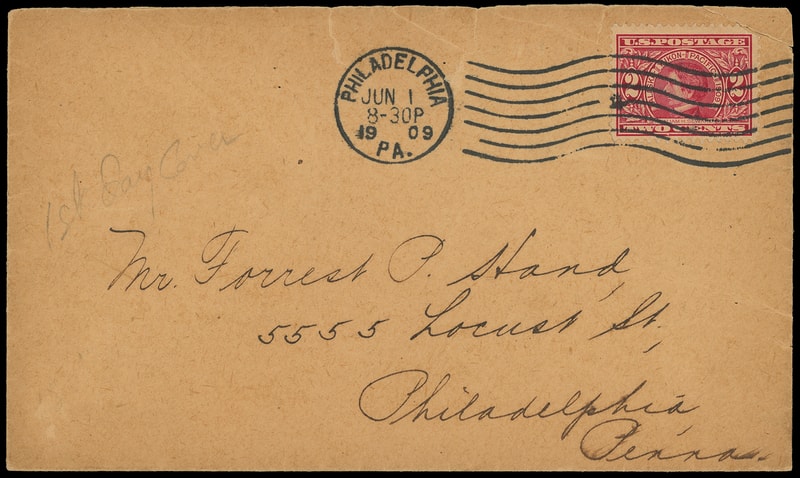 PHILADELPHIA
JUN 1
8-30P
19 09
PA.
U.S. POSTAGE
2 2
TWO CENTS
1st Day Cover
Mr. Forrest P. Hand,
5555 Locust St,
Philadelphia,
Penna.